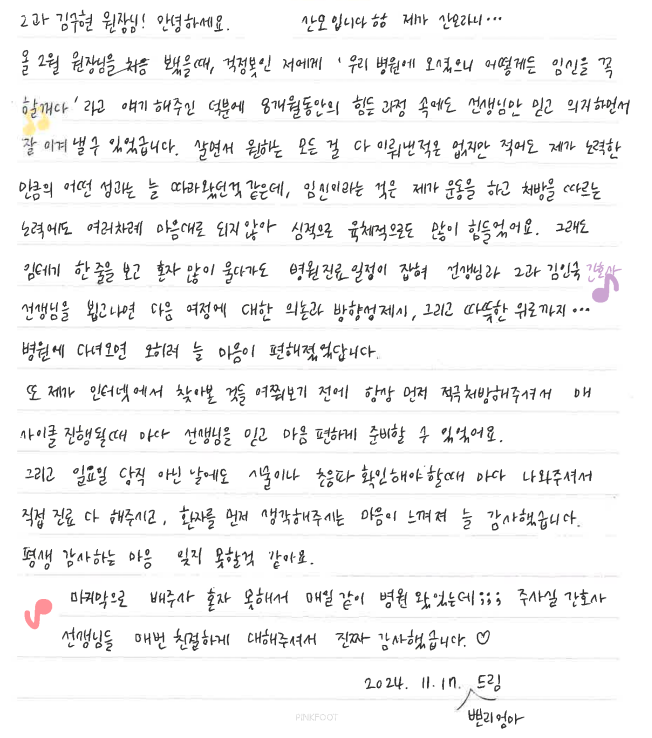 2과 김수현 원장님! 안녕하세요. 산모입니다ㅎㅎ 제가 산모라니...
올 2월 원장님을 처음 뵀을때, 걱정붓인 저에게 '우리 병원에 오셨으니 어떻게든 임신을 꼭
할꺼다' 라고 얘기해주신 덕분에 8개월동안의 힘든 과정 속에도 선생님만 믿고 의지하면서
잘 이겨 낼 수 있었습니다. 살면서 원하는 모든 걸 다 이뤄낸적은 없지만 적어도 제가 노력한
만큼의 어떤 성과는 늘 따라왔던것 같은데, 임신이라는 것은 제가 운동을 하고 처방을 따르는
노력에도 여러차례 마음대로 되지 않아 심적으로 육체적으로도 많이 힘들었어요. 그래도
임테기 한 줄을 보고 혼자 많이 울다가도 병원진료 일정이 잡혀 선생님과 2과 김인숙 간호사
선생님을 뵙고나면 다음 여정에 대한 의논과 방향성제시, 그리고 따뜻한 위로까지...
병원에 다녀오면 오히려 늘 마음이 편해졌었답니다.
또 제가 인터넷에서 찾아본 것들 여쭤보기 전에 항상 먼저 적극처방해주셔서 매
사이클 진행될때 마다 선생님을 믿고 마음 편하게 준비할 수 있었어요.
그리고 일요일 당직 아닌 날에도 시술이나 초음파 확인해야 할때 마다 나와주셔서
직접 진료 다 해주시고, 환자를 먼저 생각해주시는 마음이 느껴져 늘 감사했습니다.
평생 감사하는 마음 잊지 못할것 같아요.
마지막으로 배주사 혼자 못해서 매일 같이 병원 왔었는데;;; 주사실 간호사
선생님들 매번 친절하게 대해주셔서 진짜 감사했습니다. ♡
2024. 11. 17. 드림
쁜리엄마
PINKFOOT